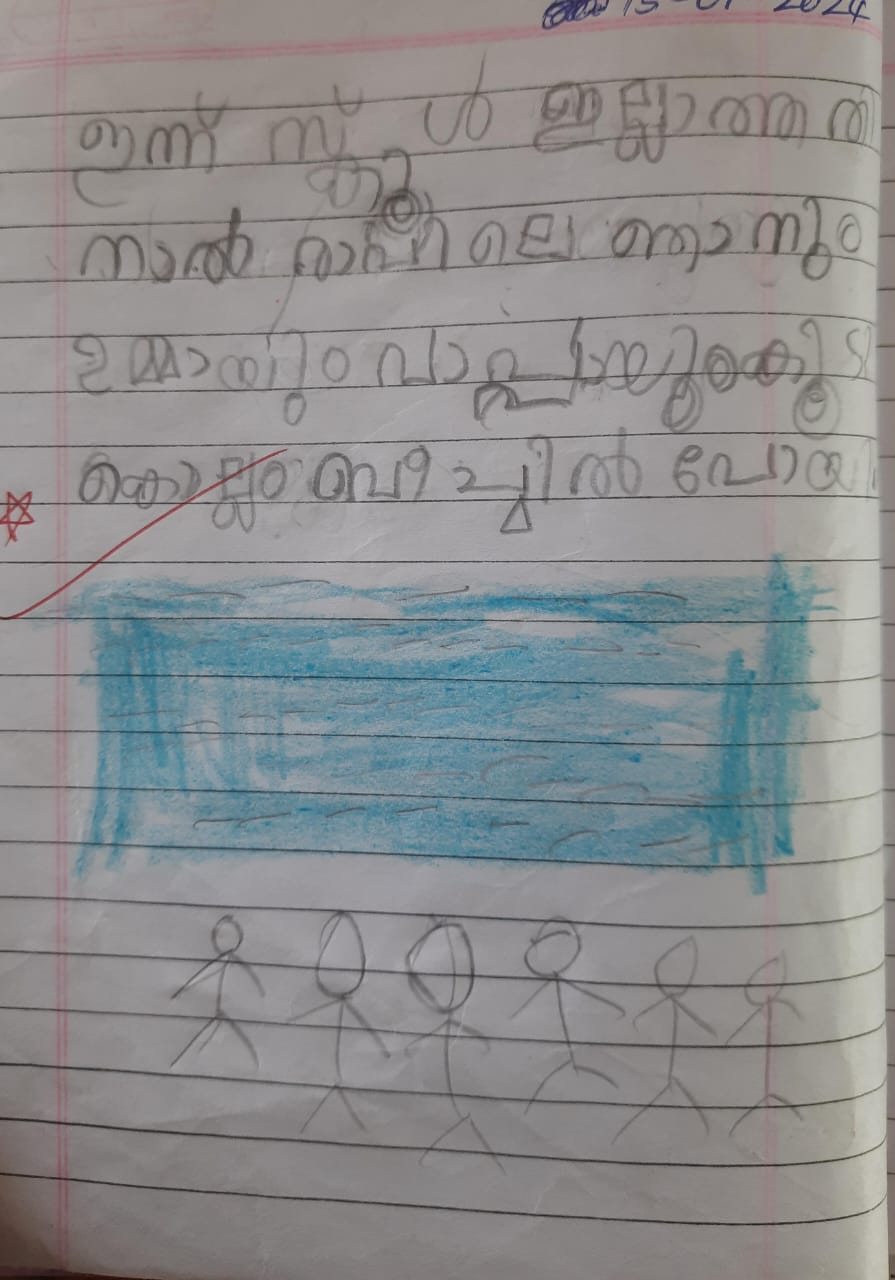 15-01-2024
ഇന്ന് സ്കൂൾ ഇല്ലാത്തതി
നാൽ രാവിലെ ഞാനും
ഉമ്മായും വാപ്പായുംകൂടി
കൊല്ലം ബീച്ചിൽ പോയി